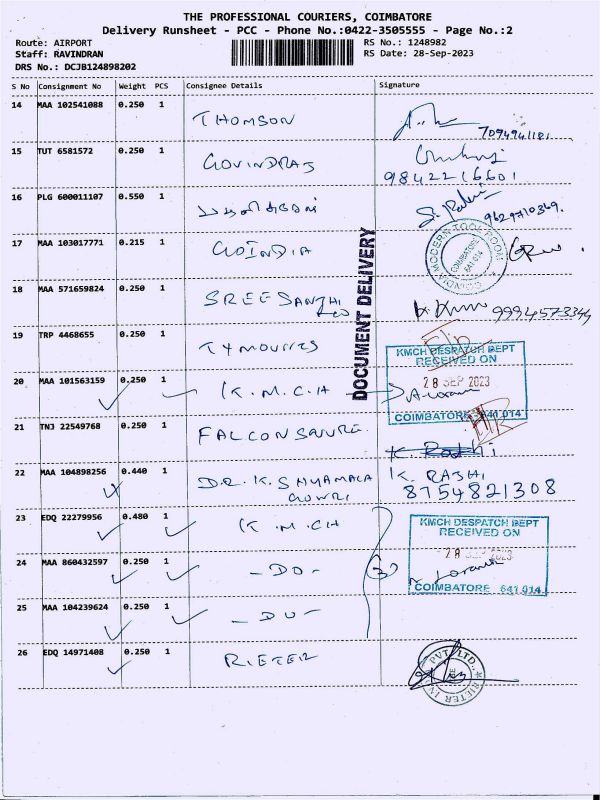 THE PROFESSIONAL COURIERS, COIMBATORE
Delivery Runsheet - PCC - Phone No.:0422-3505555 - Page No.:2
Route: AIRPORT
RS No.: 1248982
Staff: RAVINDRAN
RS Date: 28-Sep-2023
DRS No.: DCJB124898202
S No Consignment No Weight PCS Consignee Details Signature
14 MAA 102541088 0.250 1 THOMSON
7094941181
15 TUT 6581572 0.250 1 GOVINDRAJ
9842216601
16 PLG 600011107 0.550 1
9629710369.
17 MAA 103017771 0.215 1 GOINDIA
18 MAA 571659824 0.250 1 SREE SANTHI
9994573344
19 TRP 4468655 0.250 1
20 MAA 101563159 0.250 1 K.M.C.H
21 TNJ 22549768 0.250 1 FALCON
22 MAA 104898256 0.440 1 DR.K.SHYAMALA
GOWRI
K. RATHI
8754821308
23 EDQ 22279956 0.480 1 K.M.CH
24 MAA 860432597 0.250 1 -DO-
25 MAA 104239624 0.250 1 -DO-
26 EDQ 14971408 0.250 1 RIETER
DOCUMENT DELIVERY
INDIA MODERN TOOL ROOM
COIMBATORE
641 014
KMCH DESPATCH DEPT
RECEIVED ON
28 SEP 2023
COIMBATORE 641 014
KMCH DESPATCH DEPT
RECEIVED ON
28 SEP 2023
COIMBATORE 641 014
RIETER IN PVT. LTD.